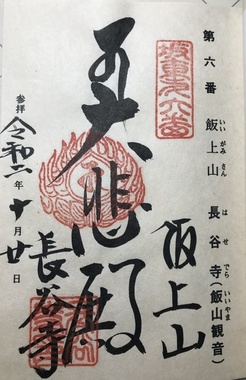 第六番 飯上山 長谷寺(飯山観音)
いいがみ さん は せ でら いいやま
坂東第六番
飯上山
大悲殿
長谷寺
参拝
令和二年十月廿日